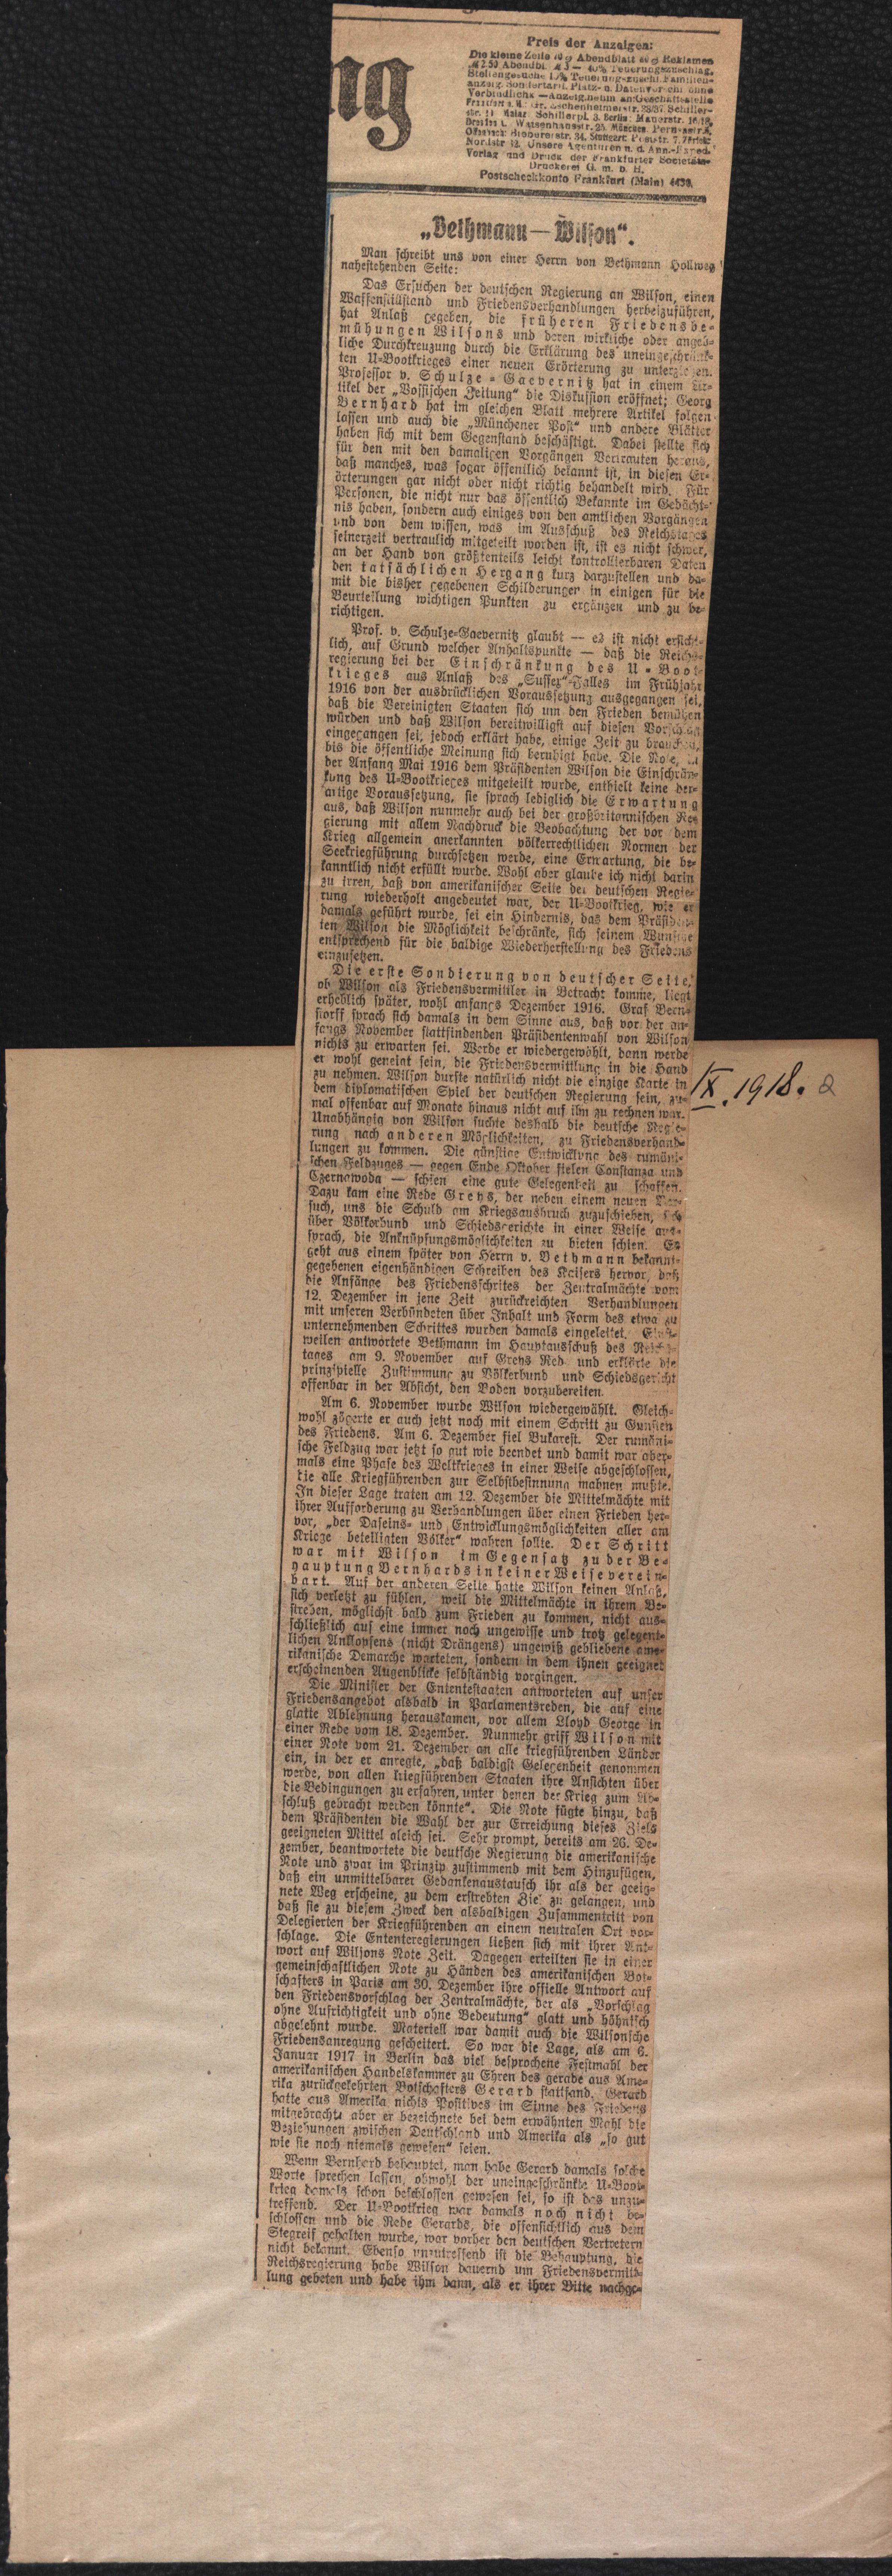 ng
Preis der Anzeigen:
Die kleine Zeile Abendblatt Reklamen
2.50 Abendbl. 3 — 40% Teuerungszuschlag.
Stellengesuche Teuerungszuschl. Familien-
anzeig. Sondertarif. Platz- u. Datenvorschr. ohne
Verbindlichk. — Anzeig.nehm. an: Geschäftsstelle
Schiller-
Mainz: Schillerpl. 3. Berlin: Mauerstr. 16/18.
Waisenhausstr. 25. München: Perusastr. 5.
Offenbach: Biebererstr. 34. Stuttgart: Poststr. 7. Zürich:
Nordstr. 62. Unsere Agenturen u. d. Ann.-Exped.
Verlag und Druck der Frankfurter Societäts-
Druckerei G. m. b. H.
Postscheckkonto Frankfurt (Main) 4430.
„Bethmann—Wilson“.
Man schreibt uns von einer Herrn von Bethmann Hollweg
nahestehenden Seite:
Das Ersuchen der deutschen Regierung an Wilson, einen
Waffenstillstand und Friedensverhandlungen herbeizuführen,
hat Anlaß gegeben, die früheren Friedensbe-
mühungen Wilsons und deren wirkliche oder angeb-
liche Durchkreuzung durch die Erklärung des uneingeschränk-
ten U-Bootkrieges einer neuen Erörterung zu unterziehen.
Professor v. Schulze-Gaevernitz hat in einem Ar-
tikel der „Vossischen Zeitung“ die Diskussion eröffnet; Georg
Bernhard hat im gleichen Blatt mehrere Artikel folgen
lassen und auch die „Münchener Post“ und andere Blätter
haben sich mit dem Gegenstand beschäftigt. Dabei stellte sich
für den mit den damaligen Vorgängen Vertrauten heraus,
daß manches, was sogar öffentlich bekannt ist, in diesen Er-
örterungen gar nicht oder nicht richtig behandelt wird. Für
Personen, die nicht nur das öffentlich Bekannte im Gedächt-
nis haben, sondern auch einiges von den amtlichen Vorgängen
und von dem wissen, was im Ausschuß des Reichstages
seinerzeit vertraulich mitgeteilt worden ist, ist es nicht schwer,
an der Hand von größtenteils leicht kontrollierbaren Daten
den tatsächlichen Hergang kurz darzustellen und da-
mit die bisher gegebenen Schilderungen in einigen für die
Beurteilung wichtigen Punkten zu ergänzen und zu be-
richtigen.
Prof. v. Schulze-Gaevernitz glaubt — es ist nicht ersicht-
lich, auf Grund welcher Anhaltspunkte — daß die Reichs-
regierung bei der Einschränkung des U-Boot-
krieges aus Anlaß des „Sussex“-Falles im Frühjahr
1916 von der ausdrücklichen Voraussetzung ausgegangen sei,
daß die Vereinigten Staaten sich um den Frieden bemühen
würden und daß Wilson bereitwilligst auf diesen Vorschlag
eingegangen sei, jedoch erklärt habe, einige Zeit zu brauchen,
bis die öffentliche Meinung sich beruhigt habe. Die Note, in
der Anfang Mai 1916 dem Präsidenten Wilson die Einschrän-
kung des U-Bootkrieges mitgeteilt wurde, enthielt keine der-
artige Voraussetzung, sie sprach lediglich die Erwartung
aus, daß Wilson nunmehr auch bei der großbritannischen Re-
gierung mit allem Nachdruck die Beobachtung der vor dem
Krieg allgemein anerkannten völkerrechtlichen Normen der
Seekriegführung durchsetzen werde, eine Erwartung, die be-
kanntlich nicht erfüllt wurde. Wohl aber glaube ich nicht darin
zu irren, daß von amerikanischer Seite der deutschen Regie-
rung wiederholt angedeutet war, der U-Bootkrieg, wie er
damals geführt wurde, sei ein Hindernis, das dem Präsiden-
ten Wilson die Möglichkeit beschränke, sich seinem Wunsche
entsprechend für die baldige Wiederherstellung des Friedens
einzusetzen.
Die erste Sondierung von deutscher Seite,
ob Wilson als Friedensvermittler in Betracht komme, liegt
erheblich später, wohl anfangs Dezember 1916. Graf Bern-
storff sprach sich damals in dem Sinne aus, daß vor der an-
fangs November stattfindenden Präsidentenwahl von Wilson
nichts zu erwarten sei. Werde er wiedergewählt, dann werde
er wohl geneigt sein, die Friedensvermittlung in die Hand
zu nehmen. Wilson durfte natürlich nicht die einzige Karte in
dem diplomatischen Spiel der deutschen Regierung sein, zu-
mal offenbar auf Monate hinaus nicht auf ihn zu rechnen war.
Unabhängig von Wilson suchte deshalb die deutsche Regie-
rung nach anderen Möglichkeiten, zu Friedensverhand-
lungen zu kommen. Die günstige Entwicklung des rumäni-
schen Feldzuges — gegen Ende Oktober fielen Constanza und
Czernawoda — schien eine gute Gelegenheit zu schaffen.
Dazu kam eine Rede Greys, der neben einem neuen Ver-
such, uns die Schuld am Kriegsausbruch zuzuschieben, sich
über Völkerbund und Schiedsgerichte in einer Weise aus-
sprach, die Anknüpfungsmöglichkeiten zu bieten schien. Es
geht aus einem später von Herrn v. Bethmann bekannt-
gegebenen eigenhändigen Schreiben des Kaisers hervor, daß
die Anfänge des Friedensschrittes der Zentralmächte vom
12. Dezember in jene Zeit zurückreichten. Verhandlungen
mit unseren Verbündeten über Inhalt und Form des etwa zu
unternehmenden Schrittes wurden damals eingeleitet. Einst-
weilen antwortete Bethmann im Hauptausschuß des Reichs-
tages am 9. November auf Greys Rede und erklärte die
prinzipielle Zustimmung zu Völkerbund und Schiedsgericht
offenbar in der Absicht, den Boden vorzubereiten.
Am 6. November wurde Wilson wiedergewählt. Gleich-
wohl zögerte er auch jetzt noch mit einem Schritt zu Gunsten
des Friedens. Am 6. Dezember fiel Bukarest. Der rumäni-
sche Feldzug war jetzt so gut wie beendet und damit war aber-
mals eine Phase des Weltkrieges in einer Weise abgeschlossen,
die alle Kriegführenden zur Selbstbesinnung mahnen mußte.
In dieser Lage traten am 12. Dezember die Mittelmächte mit
ihrer Aufforderung zu Verhandlungen über einen Frieden her-
vor, „der Daseins- und Entwicklungsmöglichkeiten aller am
Kriege beteiligten Völker“ wahren sollte. Der Schritt
war mit Wilson im Gegensatz zu der Be-
hauptung Bernhards in keiner Weise verein-
bart. Auf der anderen Seite hatte Wilson keinen Anlaß,
sich verletzt zu fühlen, weil die Mittelmächte in ihrem Be-
streben, möglichst bald zum Frieden zu kommen, nicht aus-
schließlich auf eine immer noch ungewisse und trotz gelegent-
lichen Anklopfens (nicht Drängens) ungewiß gebliebene ame-
rikanische Demarche warteten, sondern in dem ihnen geeignet
erscheinenden Augenblicke selbständig vorgingen.
Die Minister der Ententestaaten antworteten auf unser
Friedensangebot alsbald in Parlamentsreden, die auf eine
glatte Ablehnung herauskamen, vor allem Lloyd George in
einer Rede vom 18. Dezember. Nunmehr griff Wilson mit
einer Note vom 21. Dezember an alle kriegführenden Länder
ein, in der er anregte, „daß baldigst Gelegenheit genommen
werde, von allen kriegführenden Staaten ihre Ansichten über
die Bedingungen zu erfahren, unter denen der Krieg zum Ab-
schluß gebracht werden könnte“. Die Note fügte hinzu, daß
dem Präsidenten die Wahl der zur Erreichung dieses Ziels
geeigneten Mittel gleich sei. Sehr prompt, bereits am 26. De-
zember, beantwortete die deutsche Regierung die amerikanische
Note und zwar im Prinzip zustimmend mit dem Hinzufügen,
daß ein unmittelbarer Gedankenaustausch ihr als der geeig-
nete Weg erscheine, zu dem erstrebten Ziel zu gelangen, und
daß sie zu diesem Zweck den alsbaldigen Zusammentritt von
Delegierten der Kriegführenden an einem neutralen Ort vor-
schlage. Die Ententeregierungen ließen sich mit ihrer Ant-
wort auf Wilsons Note Zeit. Dagegen erteilten sie in einer
gemeinschaftlichen Note zu Händen des amerikanischen Bot-
schafters in Paris am 30. Dezember ihre offielle Antwort auf
den Friedensvorschlag der Zentralmächte, der als „Vorschlag
ohne Aufrichtigkeit und ohne Bedeutung“ glatt und höhnisch
abgelehnt wurde. Materiell war damit auch die Wilsonsche
Friedensanregung gescheitert. So war die Lage, als am 6.
Januar 1917 in Berlin das viel besprochene Festmahl der
amerikanischen Handelskammer zu Ehren des gerade aus Ame-
rika zurückgekehrten Botschafters Gerard stattfand. Gerard
hatte aus Amerika nichts Positives im Sinne des Friedens
mitgebracht, aber er bezeichnete bei dem erwähnten Mahl die
Beziehungen zwischen Deutschland und Amerika als „so gut
wie sie noch niemals gewesen“ seien.
Wenn Bernhard behauptet, man habe Gerard damals solche
Worte sprechen lassen, obwohl der uneingeschränkte U-Boot-
krieg damals schon beschlossen gewesen sei, so ist das unzu-
treffend. Der U-Bootkrieg war damals noch nicht be-
schlossen und die Rede Gerards, die offensichtlich aus dem
Stegreif gehalten wurde, war vorher den deutschen Vertretern
nicht bekannt. Ebenso unzutreffend ist die Behauptung, die
Reichsregierung habe Wilson dauernd um Friedensvermitt-
lung gebeten und habe ihm dann, als er ihrer Bitte nachge-
IX. 1918. 2